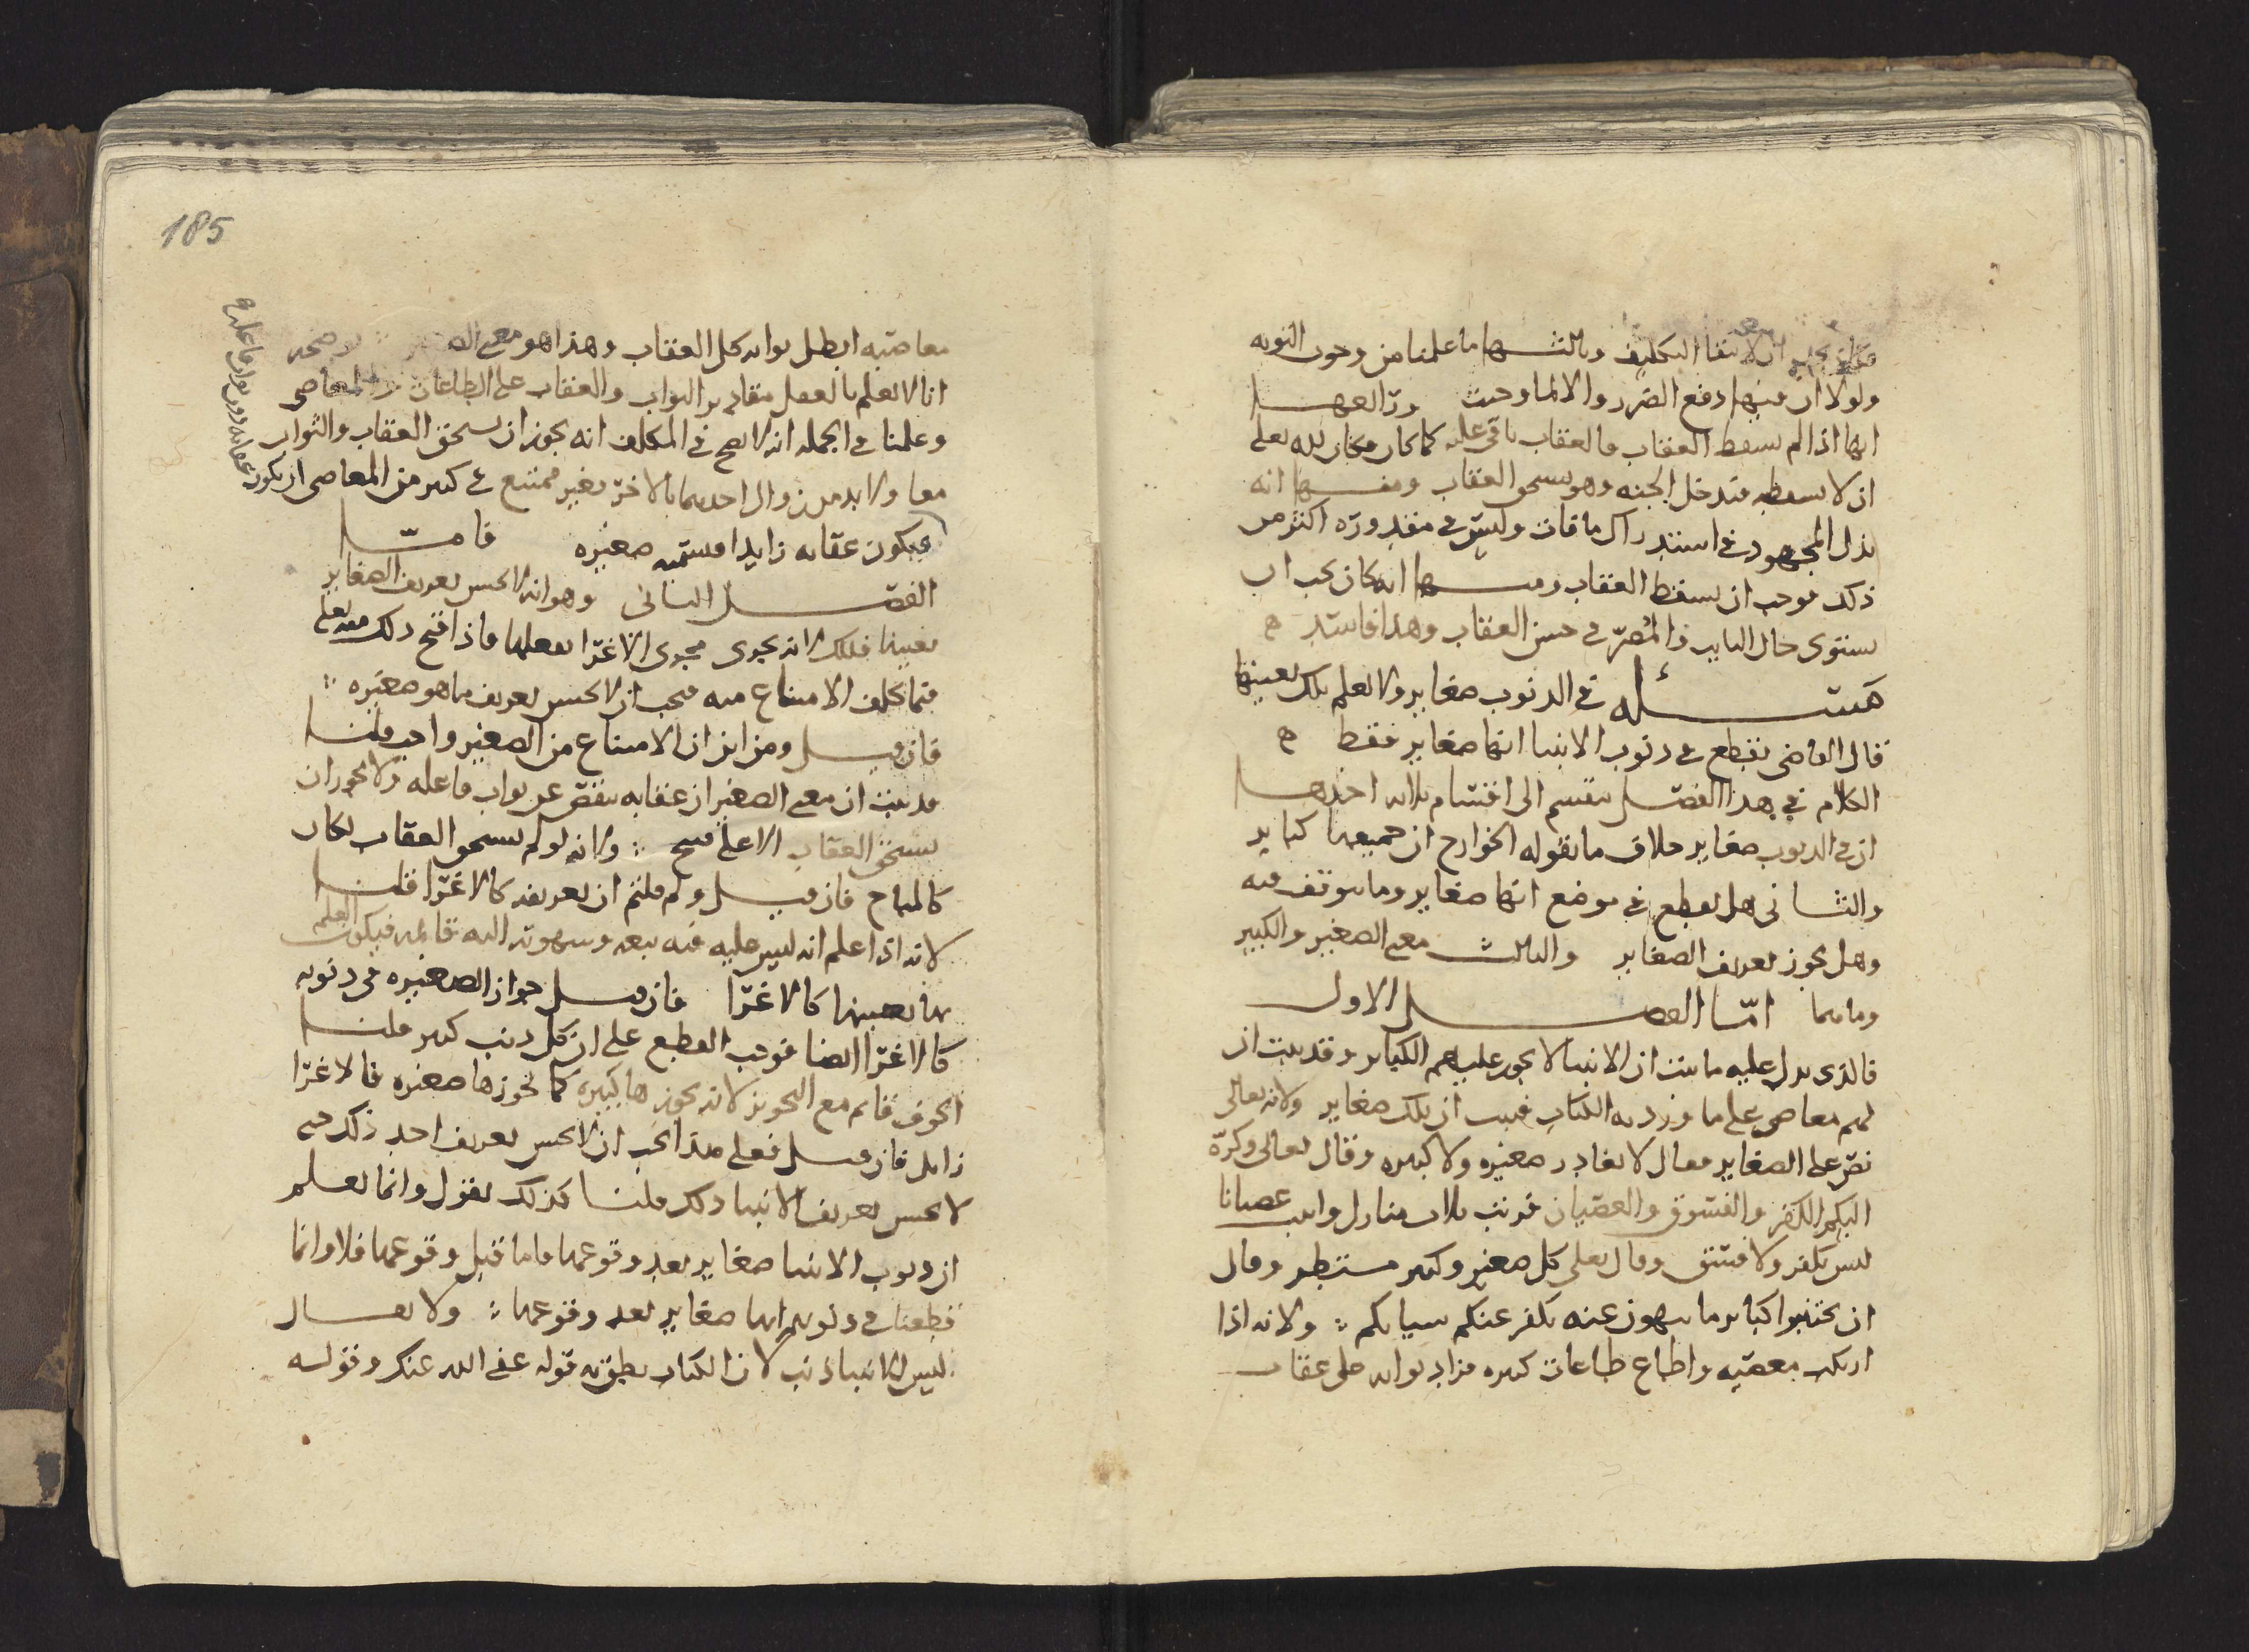 ان لا بقا التكليف وثالثها ما علمنا من وجوب التوبه
ولولا ان فيها دفع الضرر والا لما وجبت ورابعها
انها اذا لم يسقط العقاب والعقاب باقى عليه كما كان وكان لله تعلى
ان لا يسقطه فيدخل الجنه وهو يستحق العقاب ومنها انه
بذل المجهود فى استدراك ما فات وليس فى مقدوره اكثر من
ذلك فوجب ان يسقط العقاب ومنها انه كان يجب ان
يستوى حال التايب والمصرّ فى حسن العقاب وهذا فاسد
مسئله فى الذنوب صغاير ولا نعلم تلك بعينها
قال القاضى نقطع فى ذنوب الانبيا انها صغاير فقط
الكلام فى هذا الفصل ينقسم الى اقسام ثلاثه احدها
ان فى الذنوب صغاير خلاف ما تقوله الخوارج ان جميعها كباير
والثانى هل نقطع فى موضع انها صغاير وما نتوقف فيه
وهل يجوز تعريف الصغاير والثالث معنى الصغير والكبير
وما هما امّا الفصل الاول
فالذى يدل عليه ما ثبت ان الانبيا لا يجوز عليهم الكباير وقد ثبت ان
لهم معاصى على ما ورد به الكتاب فثبت ان تلك صغاير ولانه تعالى
نصّ على الصغاير فقال لا يغادر صغيره ولا كبيره وقال تعالى وكرّه
اليكم الكفر والفسوق والعصيان فرتب ثلاث منازل واثبت عصيانا
ليس بكفر ولا فسق وقال تعلى كل صغير وكبير مستطر وقال
ان تجتنبوا كباير ما تنهون عنه نكفر عنكم سياتكم ولانه اذا
ارتكب معصيه واطاع طاعات كثيره فزاد ثوابه على عقاب
185
معاصيه ابطل ثوابه كل العقاب وهذا هو معنى الصغير يوضحه
انا لا نعلم بالعقل مقادير الثواب والعقاب على الطاعات والمعاصى
وعلمنا فى الجمله انه لا يصح فى المكلف انه يجوز ان يستحق العقاب والثواب
معا ولا بد من زوال احدهما بالاخر فغير ممتنع فى كثير من المعاصى ان يكون
ويكون عقابه زايدا فسميه صغيره فامّا
الفصل الثانى وهو انه لا يحسن تعريف الصغاير
بعينها فلك لانه يجرى مجرى الاغرا بفعلها فاذا قبح ذلك منه تعلى
فيما كلف الامتناع منه فيجب ان لا يحسن تعريف ما هو صغيره
فان قيل ومن اين ان الامتناع من الصغير واجب قلنا
قد بينت ان معنى الصغير ان عقابه ينقص عن ثواب فاعله ولا يجوز ان
يستحق العقاب الا على قبيح ولانه لو لم يستحق العقاب لكان
كالمباح فان قيل ولم قلتم ان تعريفه كالاغرا قلنا
لانه اذا علم انه ليس عليه فيه تبعه وشهوته اليه قائمه فيكون العلم
بها بعينها كالاغرا فان قيل جواز الصغيره فى ذنوبه
كالاغرا ايضا فوجب القطع على ان كل ذنب كبير قلنا
الخوف قايم مع التجويز لانه يجوزها كبيره كما يجوزها صغيره فالاغرا
زايل فان قيل فعلى هذا يجب ان لا يحسن تعريف احد ذلك حتى
لا يحسن تعريف الانبيا ذلك قلنا كذلك نقول وانما نعلم
ان ذنوب الانبيا صغاير بعد وقوعها فاما قبل وقوعها فلا وانما
قطعنا فى ذنوبهم انها صغاير بعد وقوعها ولا يقال
ليس للانبيا ذنب لان الكتاب نطق به قوله عفى الله عنك وقوله